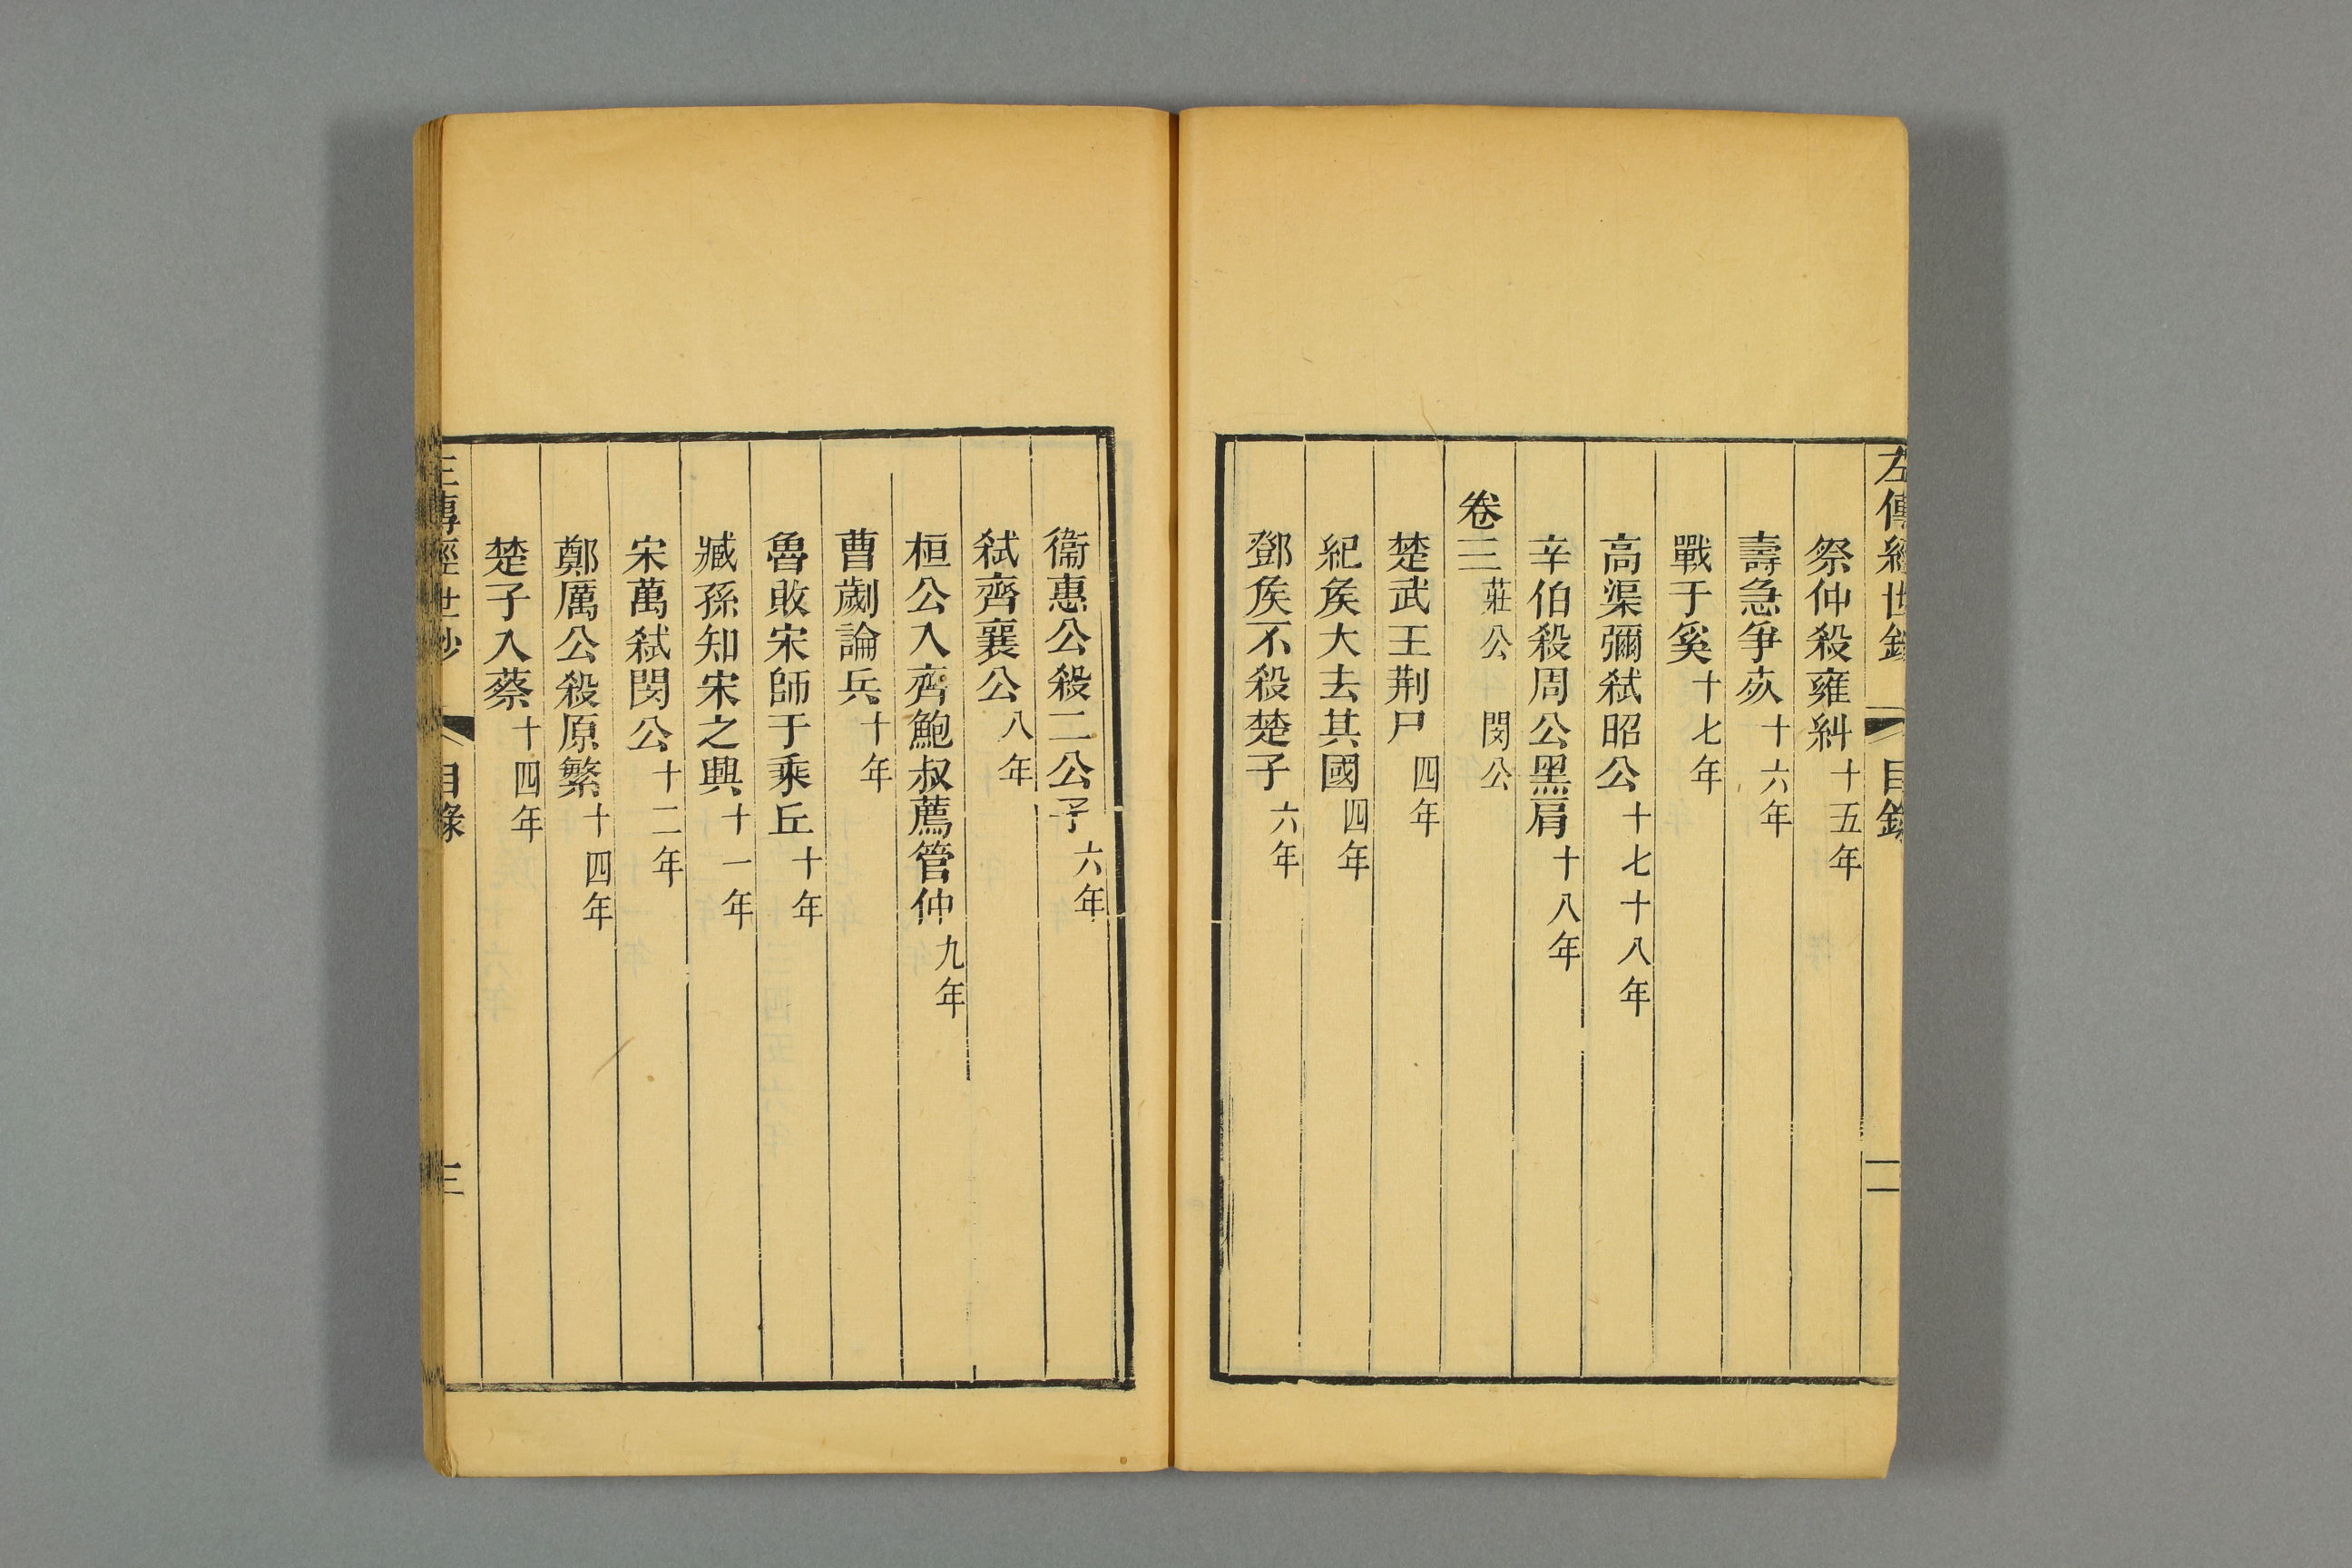 左傳經世鈔 目錄 二
祭仲殺雍糾 十五年
壽急爭死 十六年
戰于奚 十七年
高渠彌弒昭公 十七十八年
辛伯殺周公黑肩 十八年
卷三 莊公 閔公
楚武王荆尸 四年
紀矦大去其國 四年
鄧矦不殺楚子 六年
衞惠公殺二公子 六年
弒齊襄公 八年
桓公入齊鮑叔薦管仲 九年
曹劌論兵 十年
魯敗宋師于乘丘 十年
臧孫知宋之興 十一年
宋萬弒閔公 十二年
鄭厲公殺原繁 十四年
楚子入蔡 十四年
左傳經世鈔 目錄 三